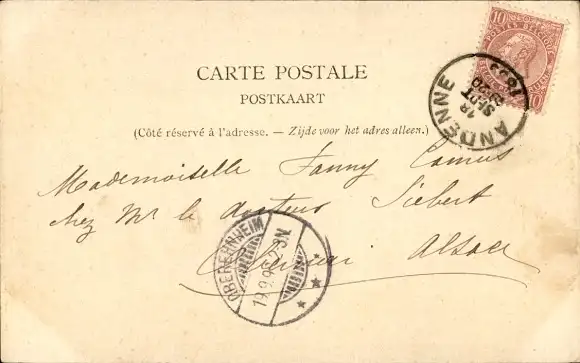 10 POSTES BELGIQUE 10
CARTE POSTALE
POSTKAART
(Côté réservé à l'adresse. — Zijde voor het adres alleen.)
ANDENNE
18
SEPT
Mademoiselle Fanny Camus
chez Mr le docteur Siebert
Alsace
OBEREHNHEIM
19.9.